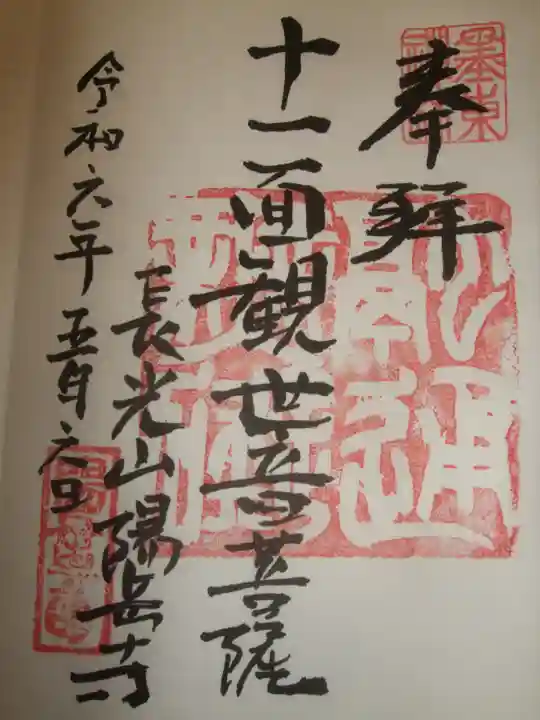 奉拝
十一面観世音菩薩
長光山陽岳寺
令和六年五月六日
墨東